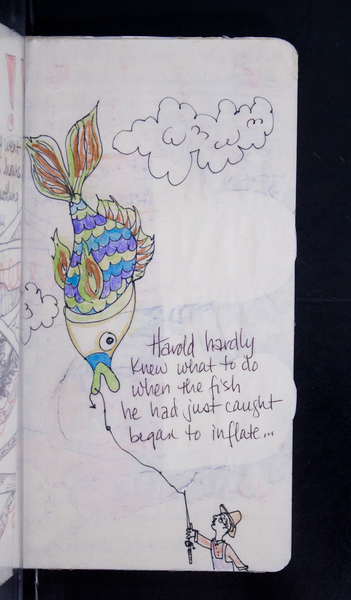 Harold hardly
knew what to do
when the fish
he had just caught
began to inflate...